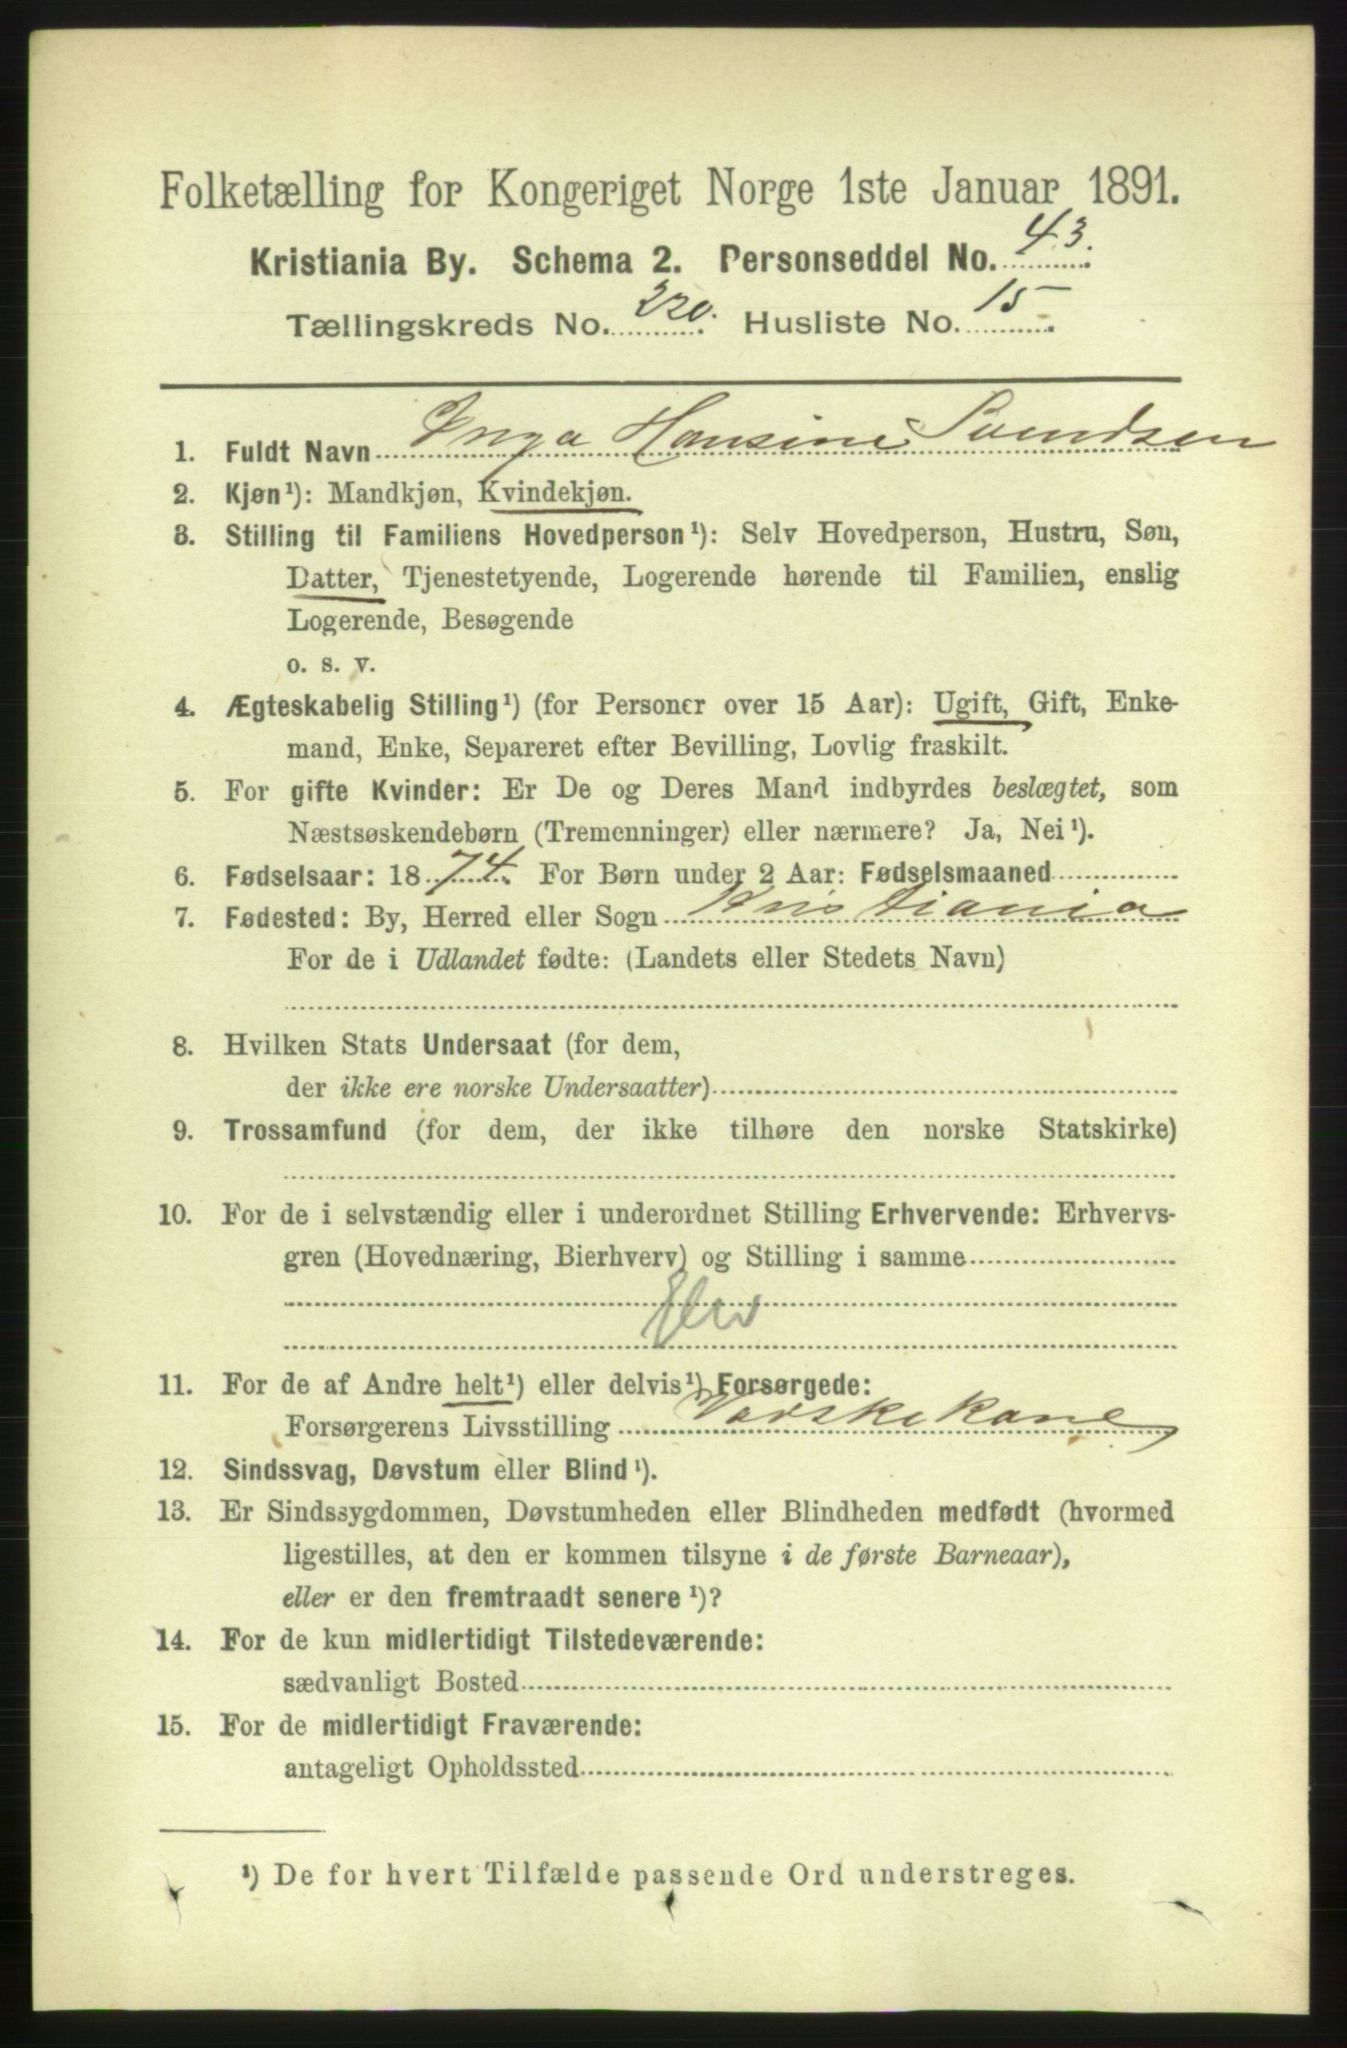 Folketælling for Kongeriget Norge 1ste Januar 1891.
Kristiania By. Schema 2. Personseddel No. 43.
Tællingskreds No. 220. Husliste No. 15.
1. Fuldt Navn Inga Hansine Svendsen
2. Kjøn¹): Mandkjøn, Kvindekjøn.
3. Stilling til Familiens Hovedperson¹): Selv Hovedperson, Hustru, Søn,
Datter, Tjenestetyende, Logerende hørende til Familien, enslig
Logerende, Besøgende
o. s. v.
4. Ægteskabelig Stilling¹) (for Personer over 15 Aar): Ugift, Gift, Enke-
mand, Enke, Separeret efter Bevilling, Lovlig fraskilt.
5. For gifte Kvinder: Er De og Deres Mand indbyrdes beslægtet, som
Næstsøskendebørn (Tremenninger) eller nærmere? Ja, Nei¹).
6. Fødselsaar: 1874. For Børn under 2 Aar: Fødselsmaaned
7. Fødested: By, Herred eller Sogn Kristiania
For de i Udlandet fødte: (Landets eller Stedets Navn)
8. Hvilken Stats Undersaat (for dem,
der ikke ere norske Undersaatter)
9. Trossamfund (for dem, der ikke tilhøre den norske Statskirke)
10. For de i selvstændig eller i underordnet Stilling Erhvervende: Erhvervs-
gren (Hovednæring, Bierhverv) og Stilling i samme
11. For de af Andre helt¹) eller delvis¹) Forsørgede:
Forsørgerens Livsstilling Vaskekone
12. Sindssvag, Døvstum eller Blind¹).
13. Er Sindssygdommen, Døvstumheden eller Blindheden medfødt (hvormed
ligestilles, at den er kommen tilsyne i de første Barneaar),
eller er den fremtraadt senere¹)?
14. For de kun midlertidigt Tilstedeværende:
sædvanligt Bosted
15. For de midlertidigt Fraværende:
antageligt Opholdssted
¹) De for hvert Tilfælde passende Ord understreges.